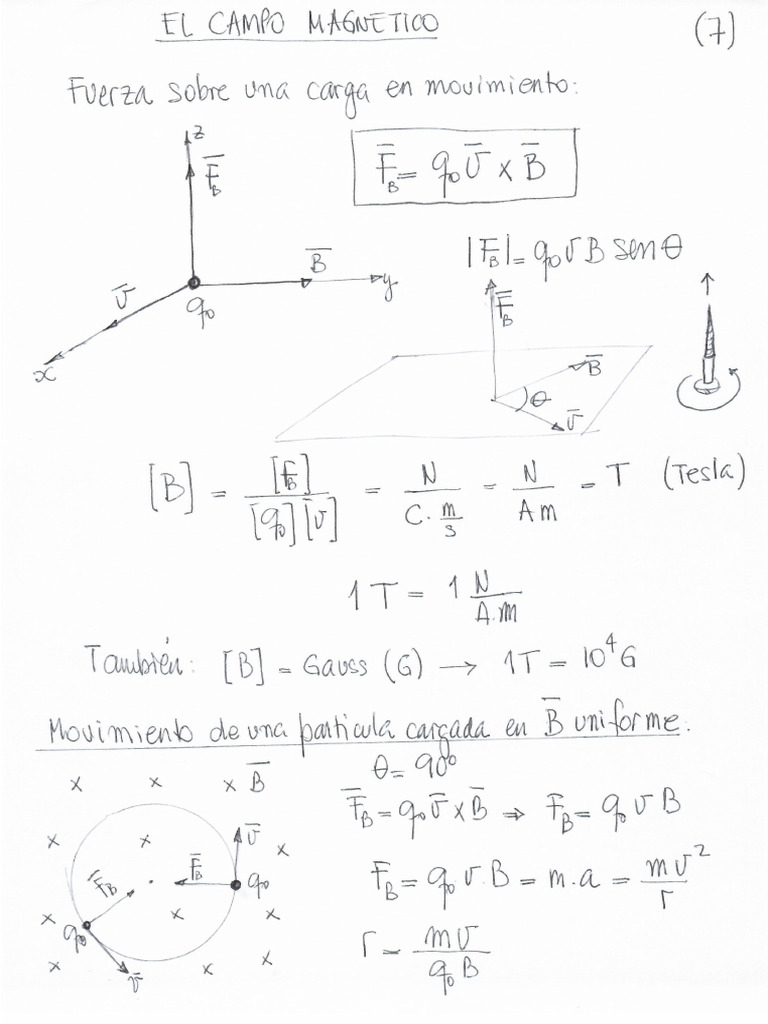 EL CAMPO MAGNETICO
(7)
Fuerza sobre una carga en movimiento:
z
F̅_B
B̅
y
v̅
q₀
x
F̅_B = q₀ v̅ × B̅
|F̅_B| = q₀ v B sen θ
F̅_B
B̅
θ
v̅
[B] = [F_B] / [q₀][v] = N / C · m/s = N / A m = T (Tesla)
1 T = 1 N / A.m
También: [B] = Gauss (G) → 1T = 10⁴ G
Movimiento de una particula cargada en B̅ uniforme:
x x x B̅
x x x
x x
x x x
v̅
F̅_B
q₀
F̅_B
q₀
v̅
θ = 90°
F̅_B = q₀ v̅ × B̅ ⇒ F_B = q₀ v B
F_B = q₀ v . B = m . a = m v² / r
r = m v / q₀ B